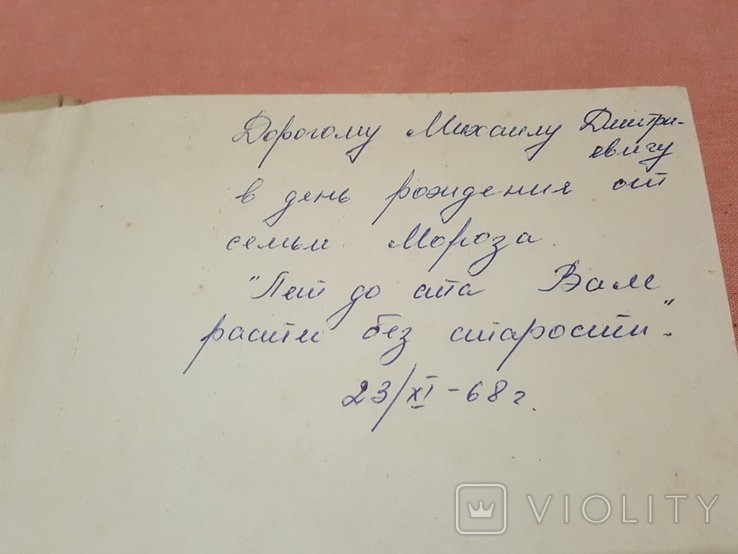 Дорогому Михаилу Дмитри-
евичу
в день рождения от
семьи Мороза.
"Лет до ста Вам
расти без старости".
23/XI-68г.
VIOLITY